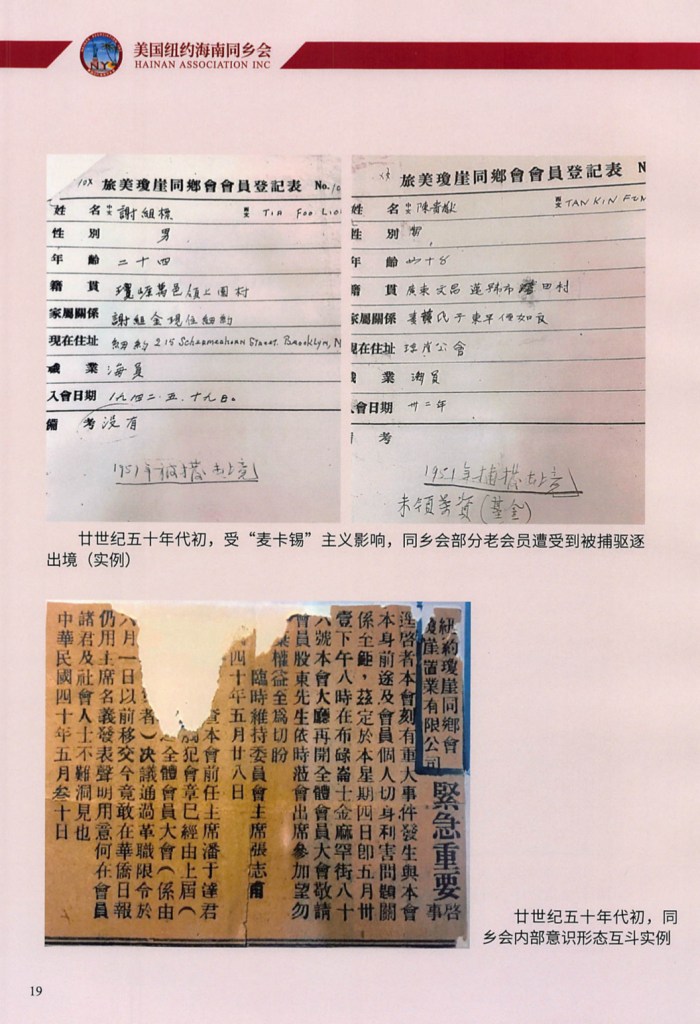 美国纽约海南同乡会
HAINAN ASSOCIATION INC
10X 旅美瓊崖同鄉會會員登記表 No.
姓 名 中文 謝組標 英文 TIA FOO
性 別 男
年 齡 二十四
籍 貫 瓊崖萬邑領上園村
家屬關係 謝組金現住紐約
現在住址 紐約 215 Schermerhorn Street. Brooklyn, N
職 業 海員
入會日期 一九四二.五.十九日。
備 考 没有
1951年被捕出境
旅美瓊崖同鄉會會員登記表 N
姓 名 中文 陳 英文 TAN KIN FUN
性 別
年 齡
籍 貫 廣東文昌 市 田村
家屬關係
現在住址 瓊崖公會
業 海員
入會日期 卅二年
考
1951年捕 出境
未領 資(基金)
廿世纪五十年代初，受“麦卡锡”主义影响，同乡会部分老会员遭受到被捕驱逐
出境（实例）
紐約瓊崖同鄉會
瓊崖置業有限公司
緊急重要啓事
逕啓者本會刻有重大事件發生與本會
本身前途及會員個人切身利害問題關
係至鉅，茲定於本星期四日卽五月卅
壹下午八時在布碌崙士金麻罕街八十
六號本會大廳再開全體會員大會敬請
會員股東先生依時蒞會出席參加望勿
棄權益至爲切盼
臨時維持委員會主席張志甫
四十年五月廿八日
查本會前任主席潘于達君
犯會章已經由上屆（
全體會員大會（係由
者）决議通過革職限令於
六月一日以前移交今竟敢在華僑日報
仍用主席名義發表聲明用意何在會員
諸君及社會人士不難洞見也
中華民國四十年五月叁十日
廿世纪五十年代初，同
乡会内部意识形态互斗实例
19